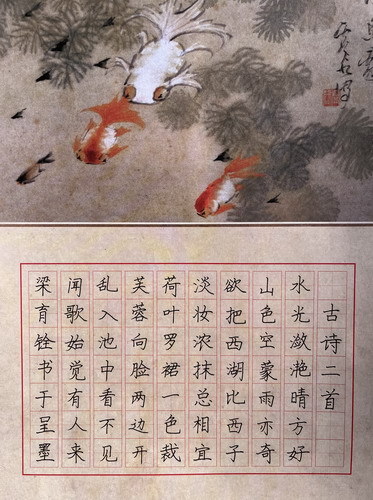 古诗二首
水光潋滟晴方好
山色空蒙雨亦奇
欲把西湖比西子
淡妆浓抹总相宜
荷叶罗裙一色裁
芙蓉向脸两边开
乱入池中看不见
闻歌始觉有人来
梁育铨书于呈墨